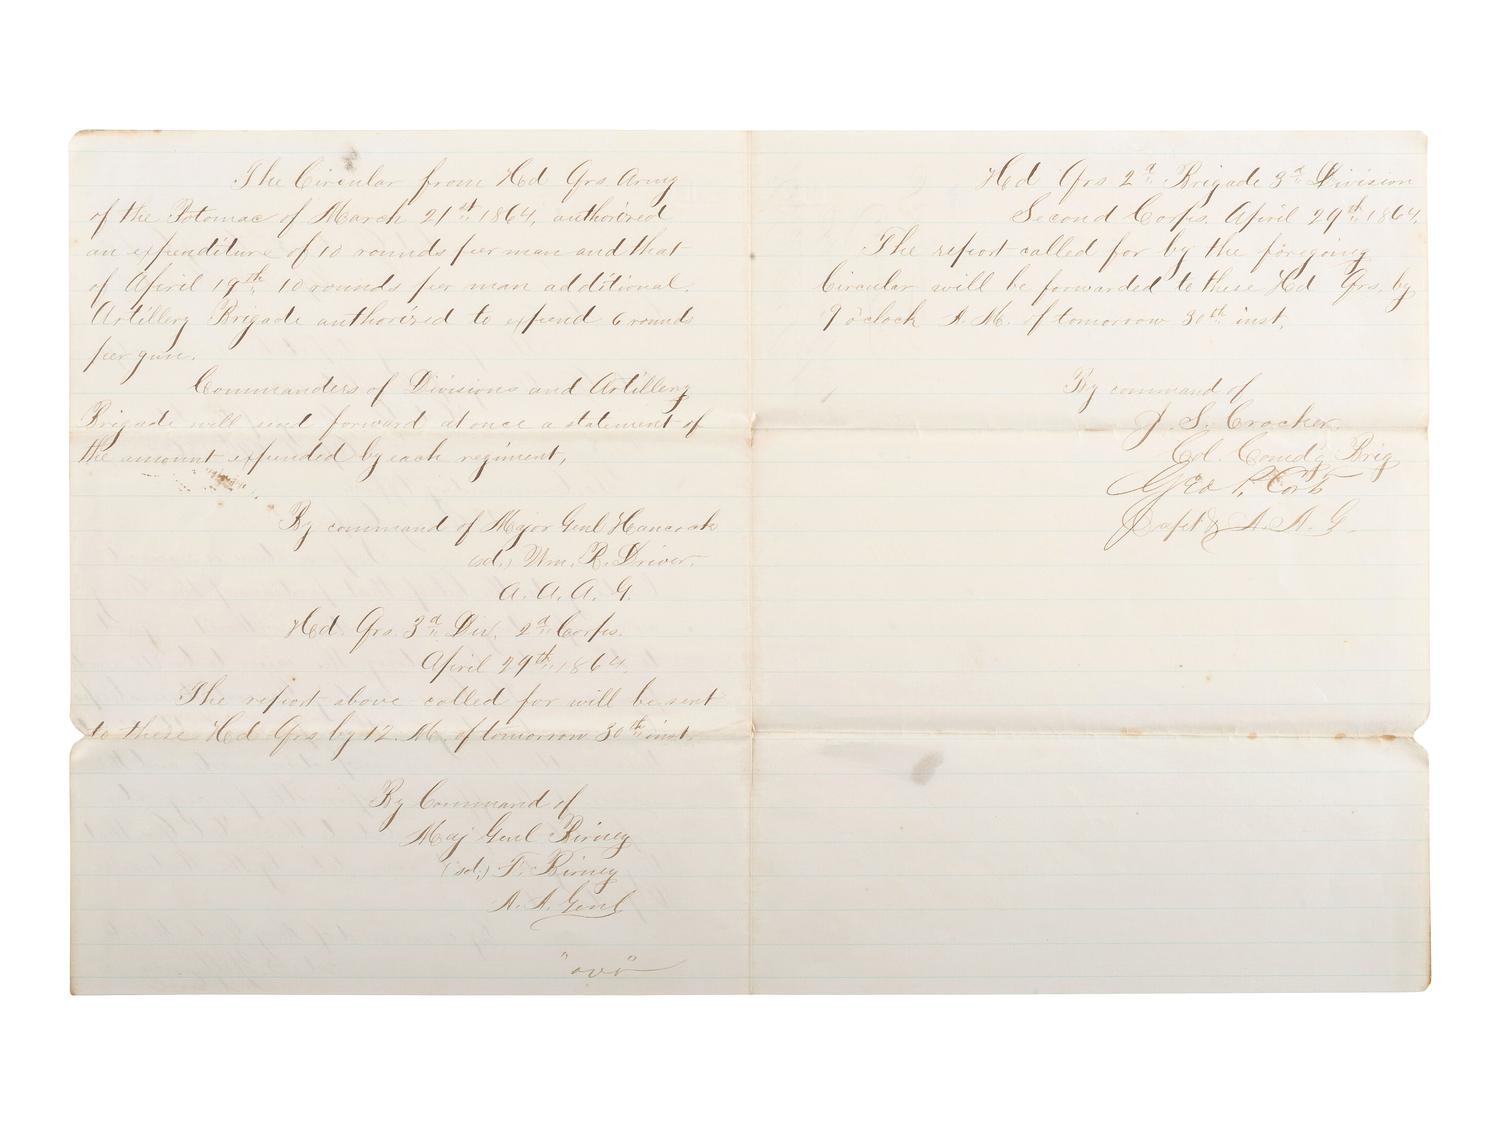 The Circular from Hd Qrs. Army
of the Potomac of March 21st 1864, authorized
an expenditure of 10 rounds per man and that
of April 19th 10 rounds per man additional.
Artillery Brigade authorized to expend 6 rounds
per gun.
Commanders of Divisions and Artillery
Brigade will send forward at once a statement of
the amount expended by each regiment,
By command of Major Genl Hancock
(sd.) Wm. R. Driver.
A. A. A. G.
Hd. Qrs. 3d Div. 2d Corps.
April 29th 1864.
The report above called for will be sent
to these Hd Qrs by 12. M. of tomorrow 30th inst.
By Command of
Maj Genl Birney
(sd.) F. Birney
A. A. Genl
"over"
Hd Qrs 2d Brigade 3d Division
Second Corps. April 29th 1864.
The report called for by the foregoing
Circular will be forwarded to these Hd Qrs. by
9 o'clock A. M. of tomorrow 30th inst.
By command of
J. S. Crocker.
Col. Comd'g Brig
Geo P. Cort
Capt & A. A. G.